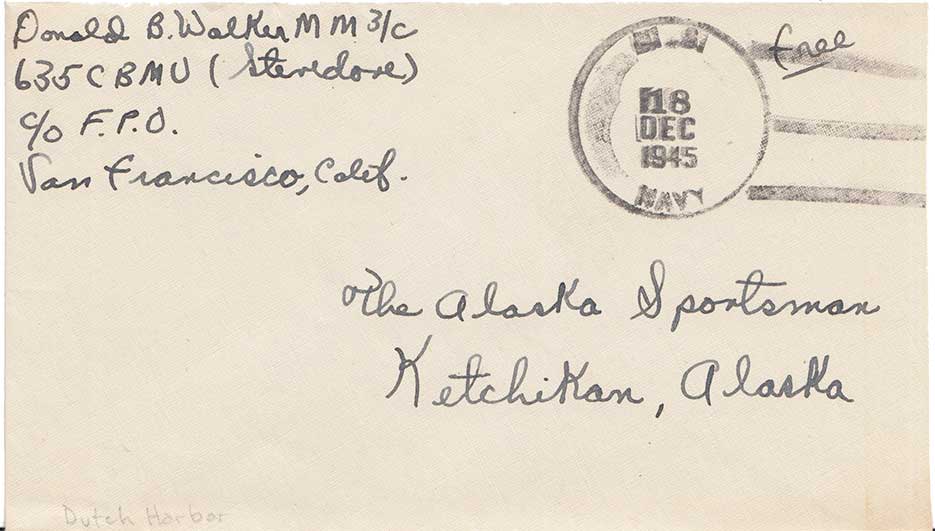 Donald B. Walker M M 3/c
635 C B M U (Stevedore)
c/o F.P.O.
San Francisco, Calif.
U.S.
18
DEC
1945
NAVY
free
The Alaska Sportsman
Ketchikan, Alaska
Dutch Harbor